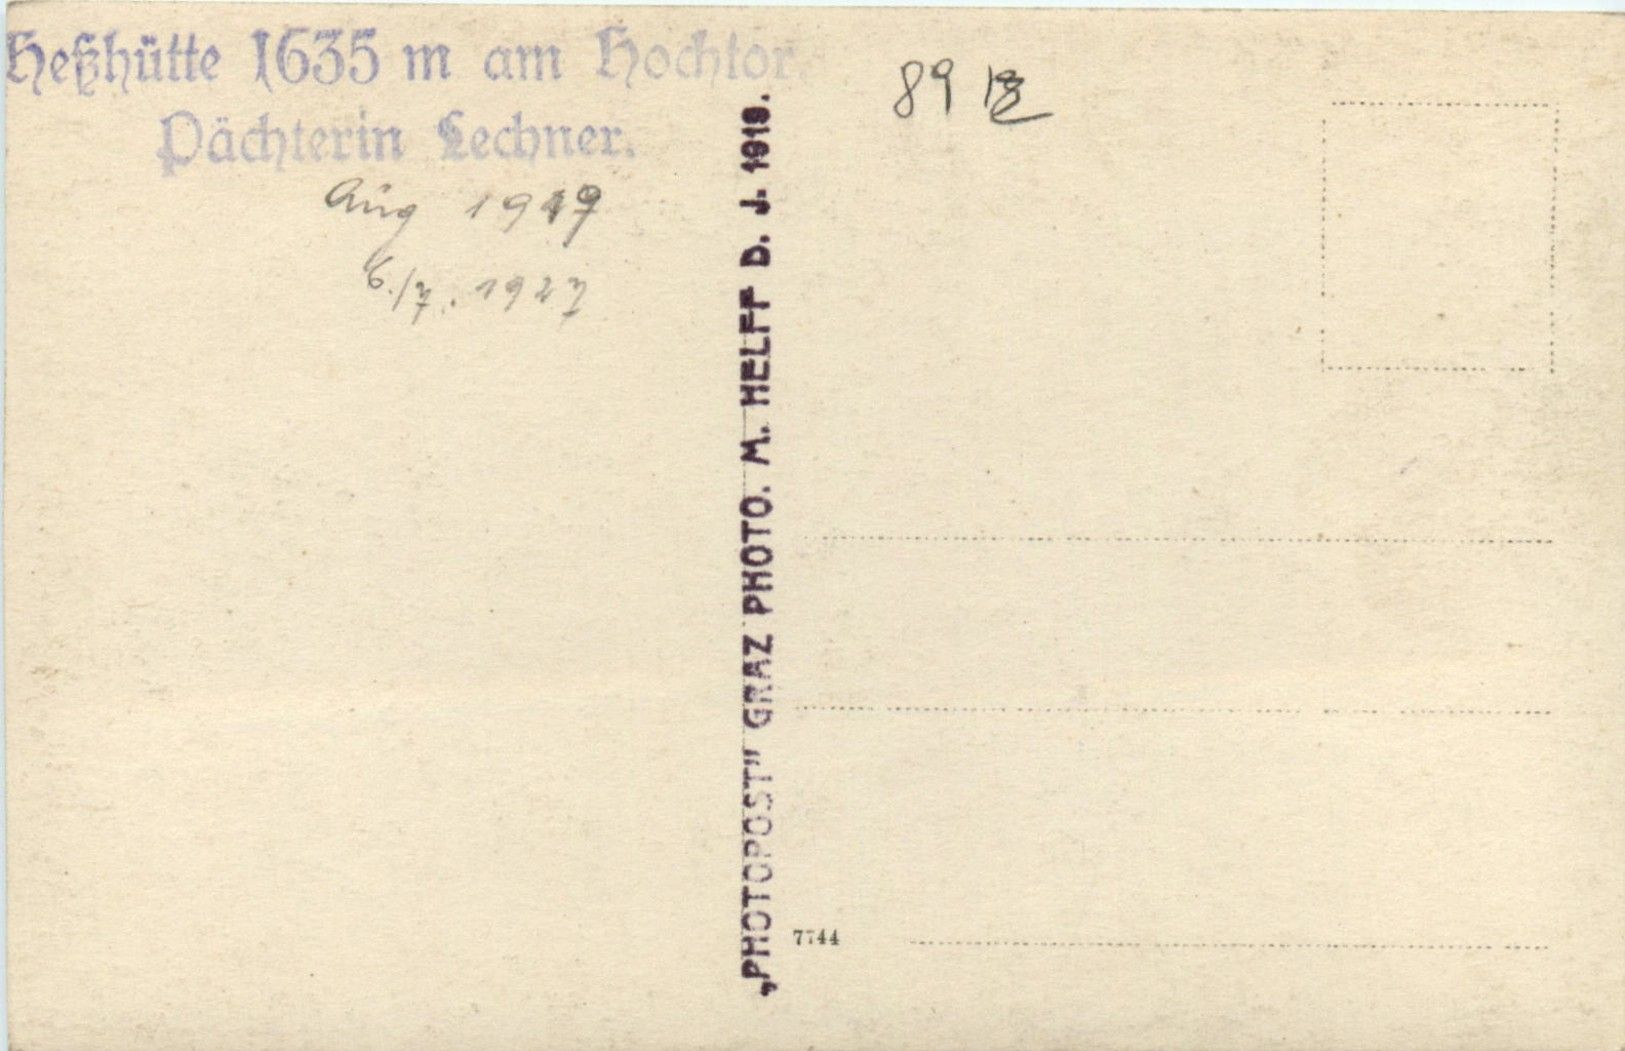 Heßhütte 1635 m am Hochtor.
Pächterin Lechner.
Aug 1919
6./7. 1927
89
„PHOTOPOST" GRAZ PHOTO. M. HELFF D. J. 1919.
7744